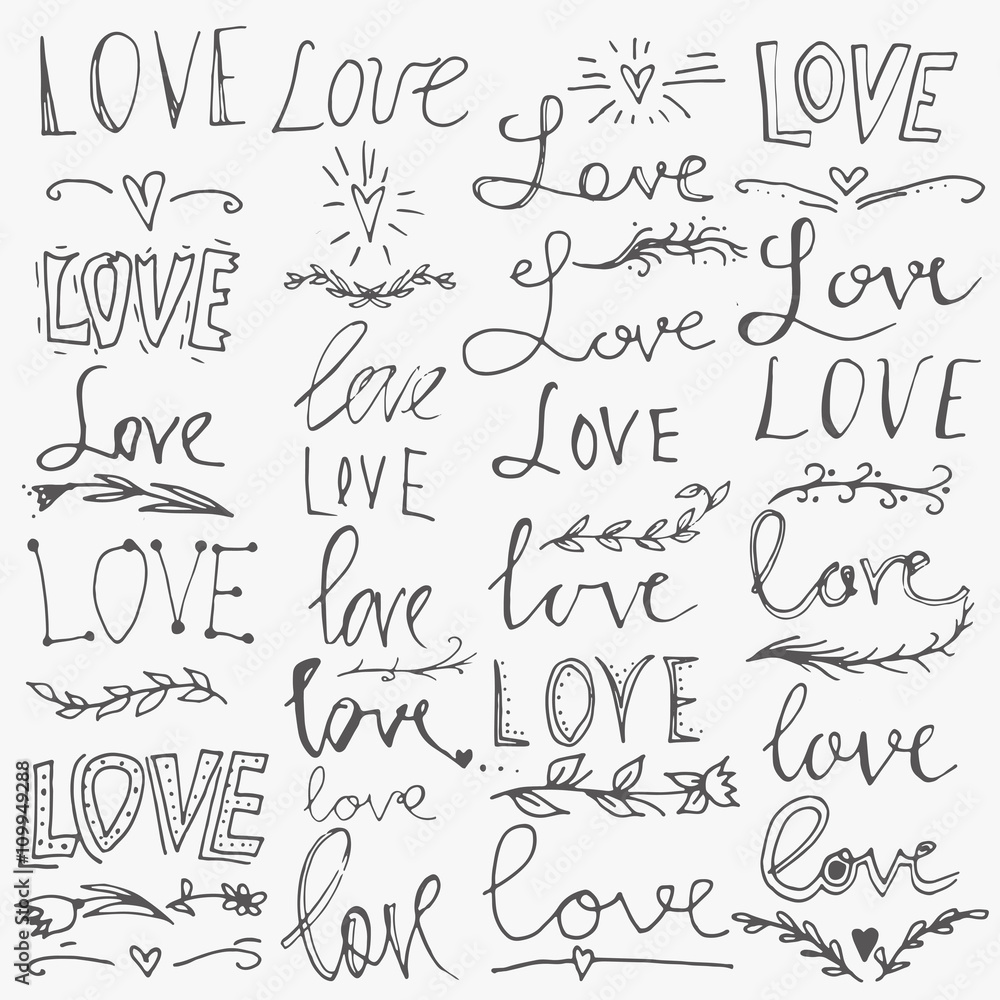 LOVE Love Love LOVE
LOVE love Love Love
Love LOVE LOVE LOVE
LOVE love love love
love LOVE love
LOVE love love love
love
Adobe Stock | #109949288